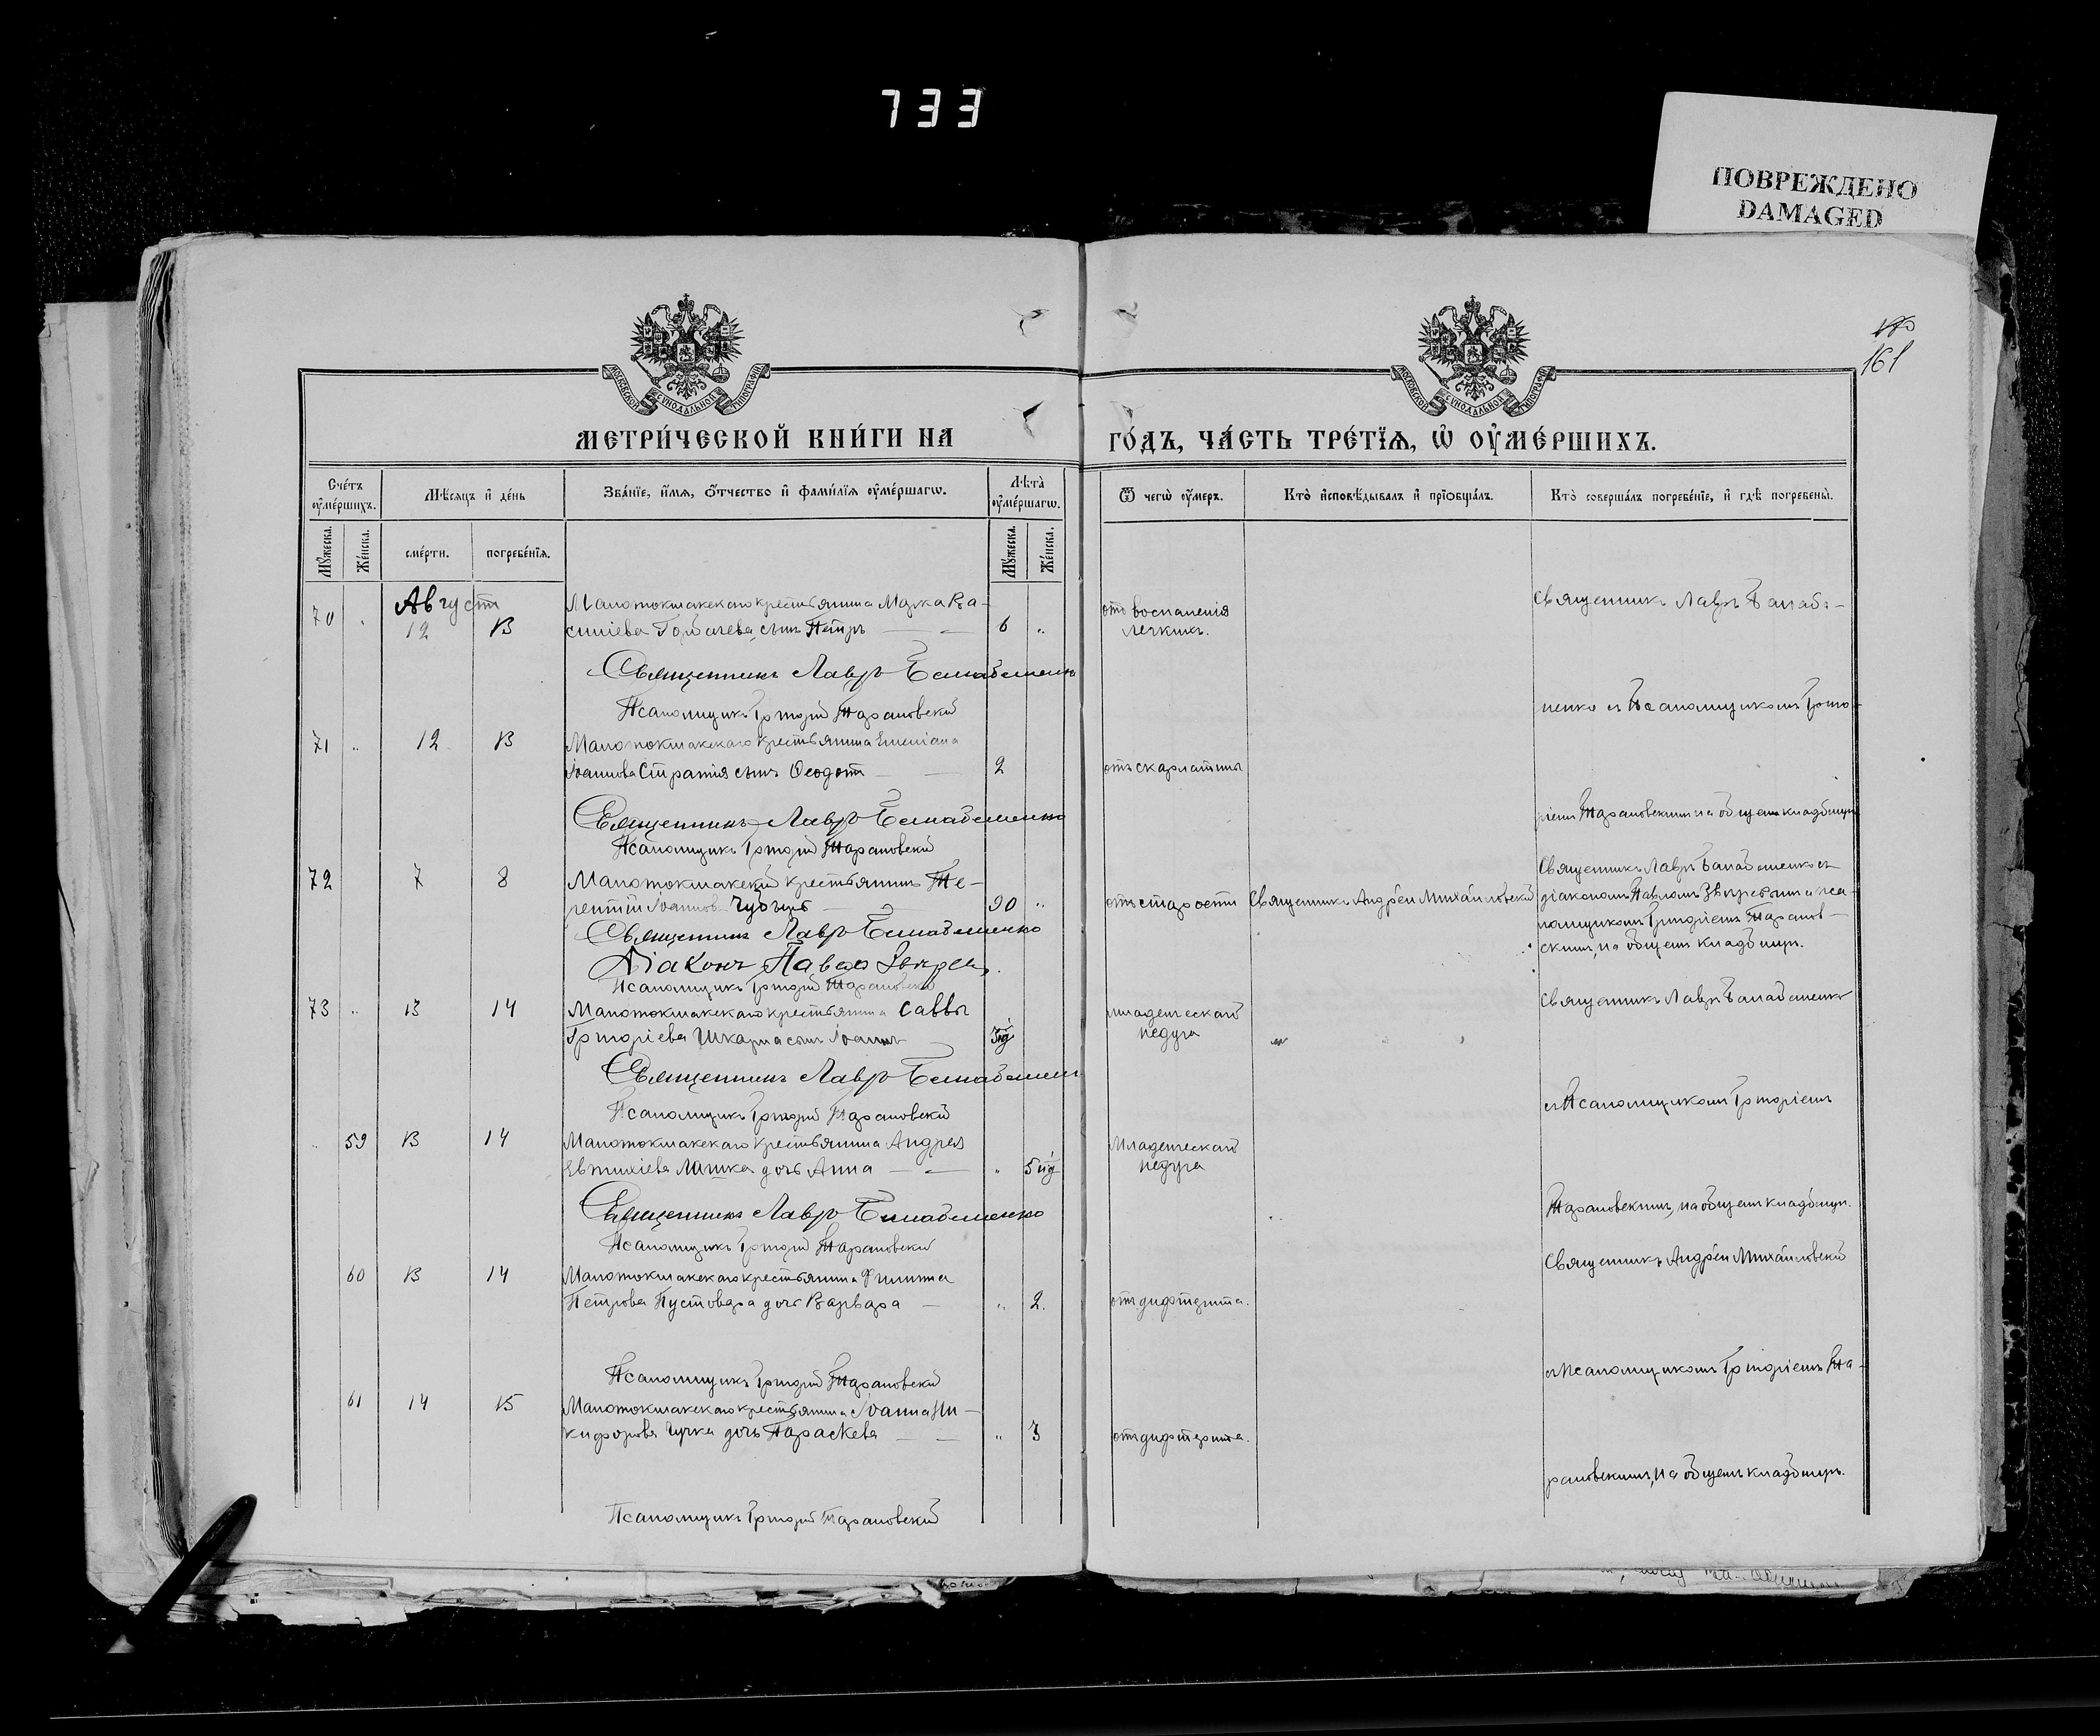 733
ПОВРЕЖДЕНО
DAMAGED
161
МОСКОВСКОЙ СѴНОДАЛЬНОЙ ТИПОГРАФІИ
МОСКОВСКОЙ СѴНОДАЛЬНОЙ ТИПОГРАФІИ
МЕТРИ́ЧЕСКОЙ КНИ́ГИ НА
ГО́ДЪ, ЧА́СТЬ ТРЕ́ТЇѦ, Ѡ҆ ОУ҆МЕ́РШИХЪ.
Сче́тъ оу҆ме́ршихъ.
Мѣ́сѧцъ и҆ де́нь
Зва́нїе, и҆́мѧ, ѻ҆́тчество и҆ фами́лїѧ оу҆ме́ршагѡ.
Лѣта̀ оу҆ме́ршагѡ.
Ѿ чегѡ̀ оу҆́меръ.
Кто̀ и҆сповѣ́дывалъ и҆ прїѡбща́лъ.
Кто̀ соверша́лъ погребе́нїе, и҆ гдѣ̀ погребены̀.
Мꙋ́жеска.
Же́нска.
сме́рти.
погребе́нїѧ.
Мꙋ́жеска.
Же́нска.
Августъ
70 12 13 Малотокмакскаго крестьянина Марка Ва-
силіева Горбачева сынъ Петръ — — 6 „ отъ воспаленія
легкихъ.
Священникъ Лавръ Балаба-
Священникъ Лавръ Балабаненко
Псаломщикъ Григорій Тарановскій
ненко съ Псаломщикомъ Григо-
71 „ 12 13 Малотокмакскаго крестьянина Емеліана
Іоаннова Стратія сынъ Ѳеодотъ — 2 отъ скарлатины
Священникъ Лавръ Балабаненко
ріемъ Тарановскимъ на общемъ кладбищѣ
Псаломщикъ Григорій Тарановскій
72 7 8 Малотокмакскій крестьянинъ Те-
рентій Іоанновъ Чубецъ 90 „ отъ старости Священникъ Андрей Михайловскій
Священникъ Лавръ Балабаненко съ
діакономъ Павломъ Звѣревымъ и пса-
ломщикомъ Григоріемъ Таранов-
скимъ, на общемъ кладбищѣ.
Священникъ Лавръ Балабаненко
Діаконъ Павелъ Звѣревъ.
Псаломщикъ Григорій Тарановскій
73 „ 13 14 Малотокмакскаго крестьянина Саввы
Григоріева Шкарпа сынъ Іоаннъ младенческаго
недуга
Священникъ Лавръ Балабаненко
Священникъ Лавръ Балабаненко
Псаломщикъ Григорій Тарановскій
съ Псаломщикомъ Григоріемъ
„ 59 13 14 Малотокмакскаго крестьянина Андрея
Евтихіева Ляшка дочь Анна — — „ Младенческаго
недуга
Священникъ Лавръ Балабаненко
Тарановскимъ, на общемъ кладбищѣ.
Псаломщикъ Григорій Тарановскій
60 13 14 Малотокмакскаго крестьянина Филиппа
Петрова Пустовара дочь Варвара — „ 2. отъ дифтерита.
Священникъ Андрей Михайловскій
Псаломщикъ Григорій Тарановскій
съ Псаломщикомъ Григоріемъ Та-
61 14 15 Малотокмакскаго крестьянина Іоанна Ни-
кифорова дочь Параскева — — „ 3 отъ дифтерита.
рановскимъ, на общемъ кладбищѣ.
Псаломщикъ Григорій Тарановскій